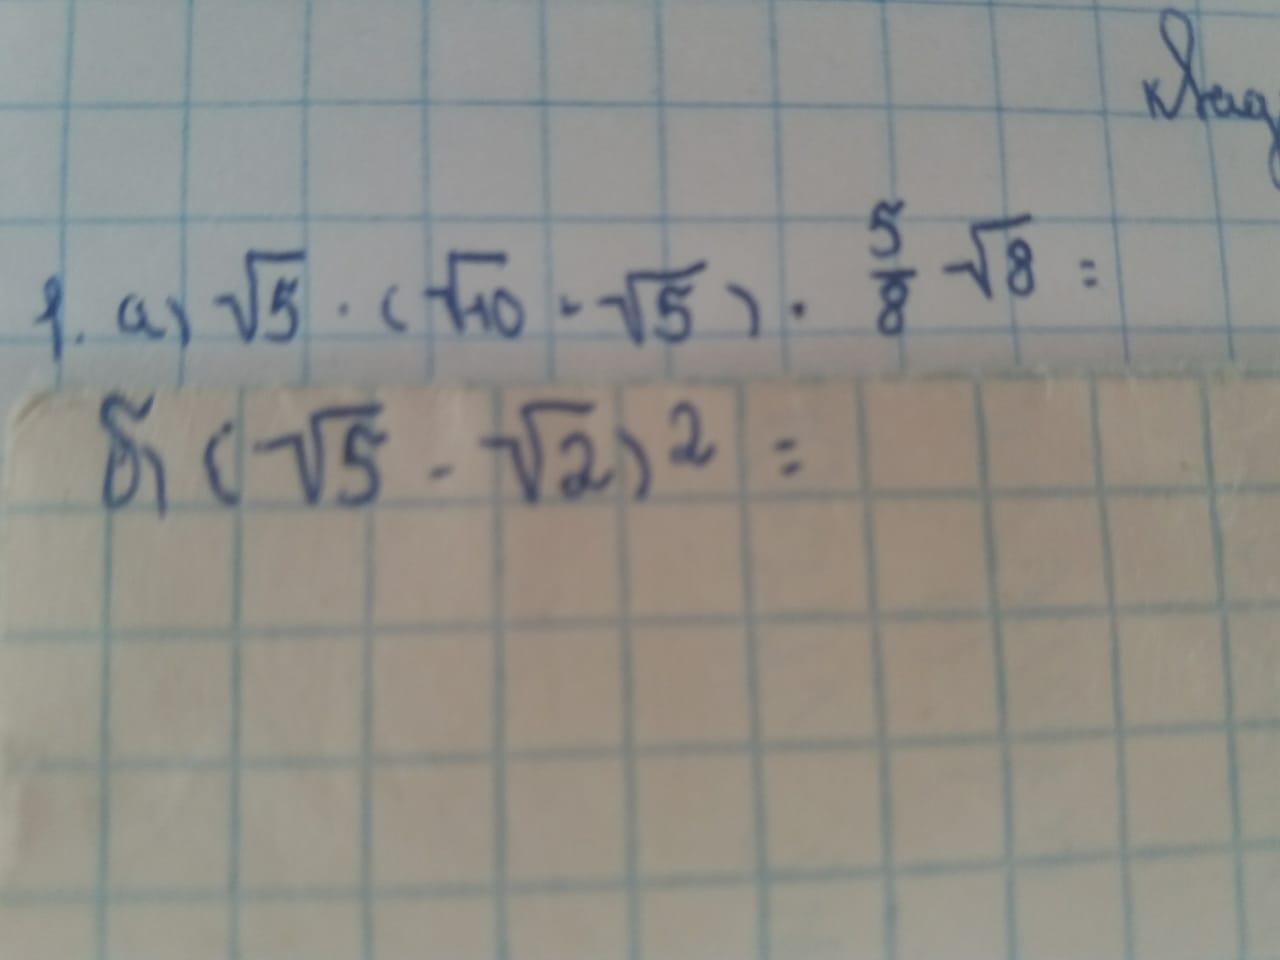 1. а) √5 · (√10 - √5) · 5/8 √8 =
б) (√5 - √2)² =